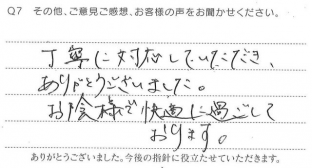 Q7 その他、ご意見ご感想、お客様の声をお聞かせください。
丁寧に対応していただき、
ありがとうございました。
お陰様で快適に過ごして
おります。
ありがとうございました。今後の指針に役立たせていただきます。